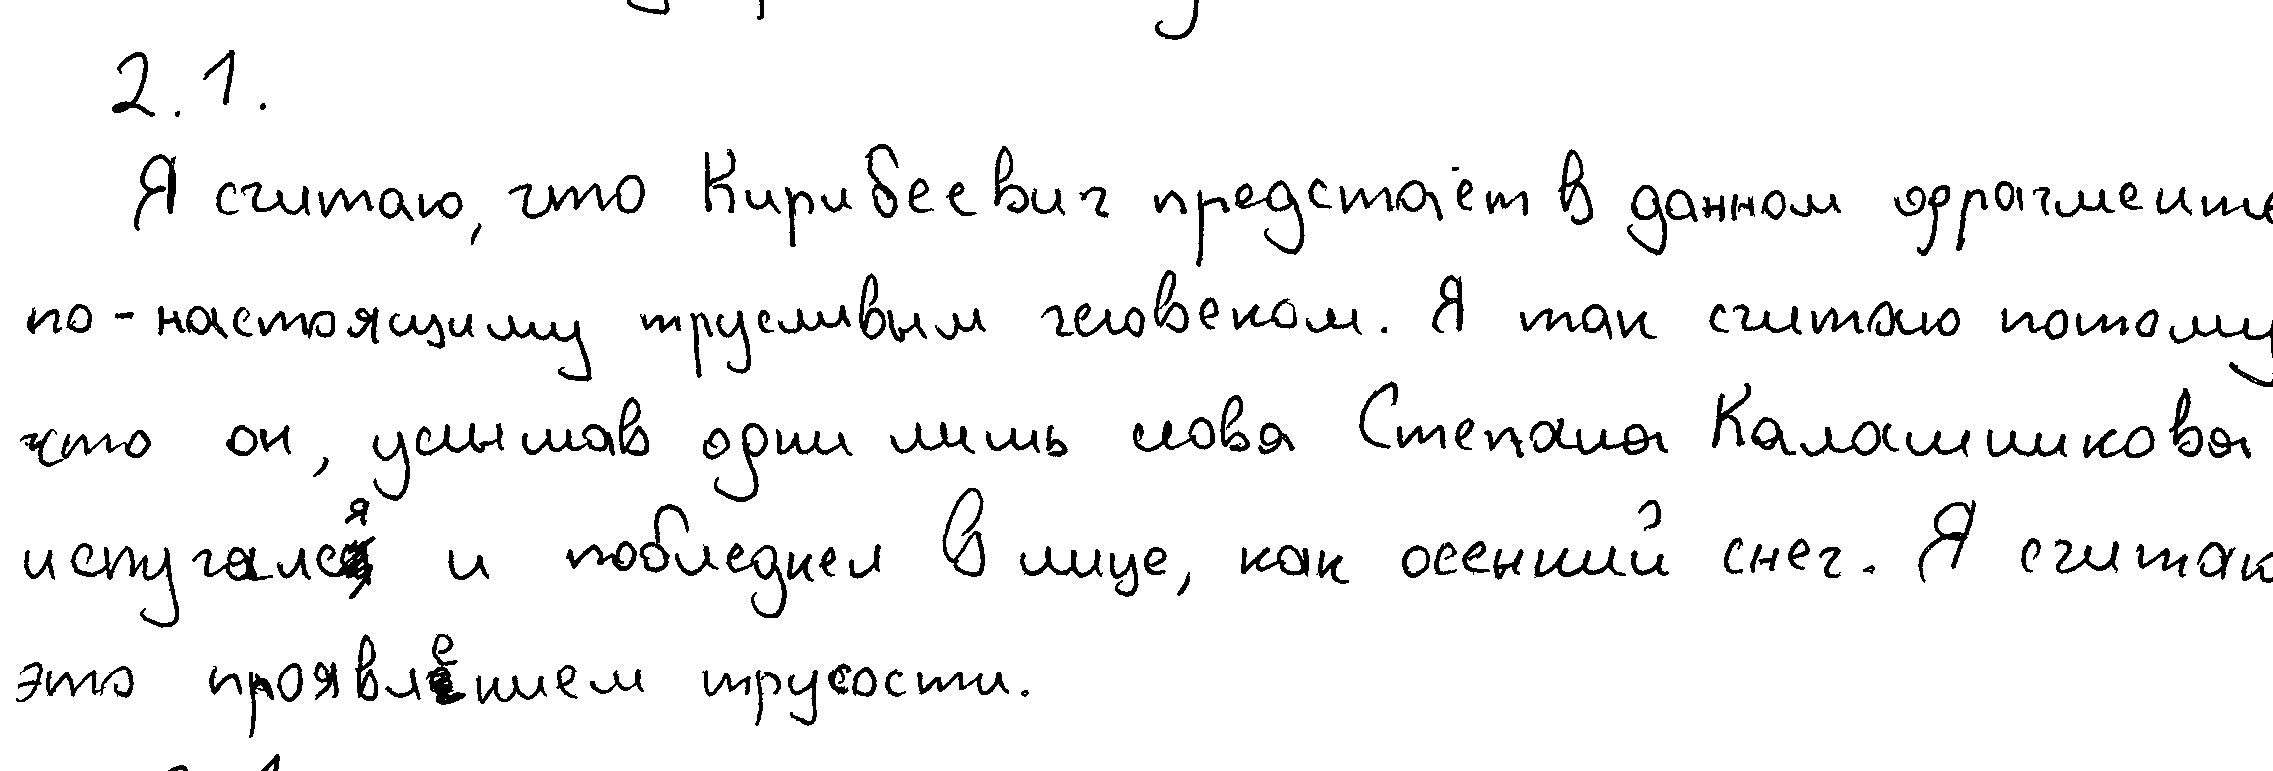 2.1.
Я считаю, что Кирибеевич предстаёт в данном фрагменте
по-настоящему трусливым человеком. Я так считаю потому
что он, услышав одни лишь слова Степана Калашникова
испугался и побледнел в лице, как осенний снег. Я считаю
это проявлением трусости.